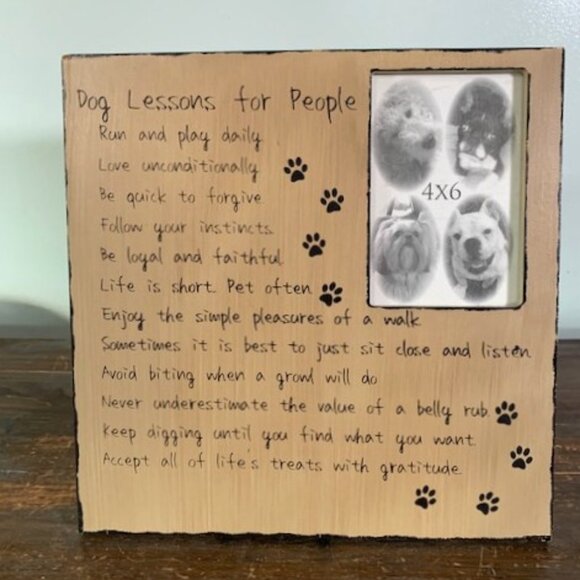 Dog Lessons for People
Run and play daily
Love unconditionally
Be quick to forgive.
Follow your instincts.
Be loyal and faithful.
Life is short. Pet often.
Enjoy the simple pleasures of a walk.
Sometimes it is best to just sit close and listen.
Avoid biting when a growl will do
Never underestimate the value of a belly rub.
Keep digging until you find what you want.
Accept all of life's treats with gratitude.
4X6